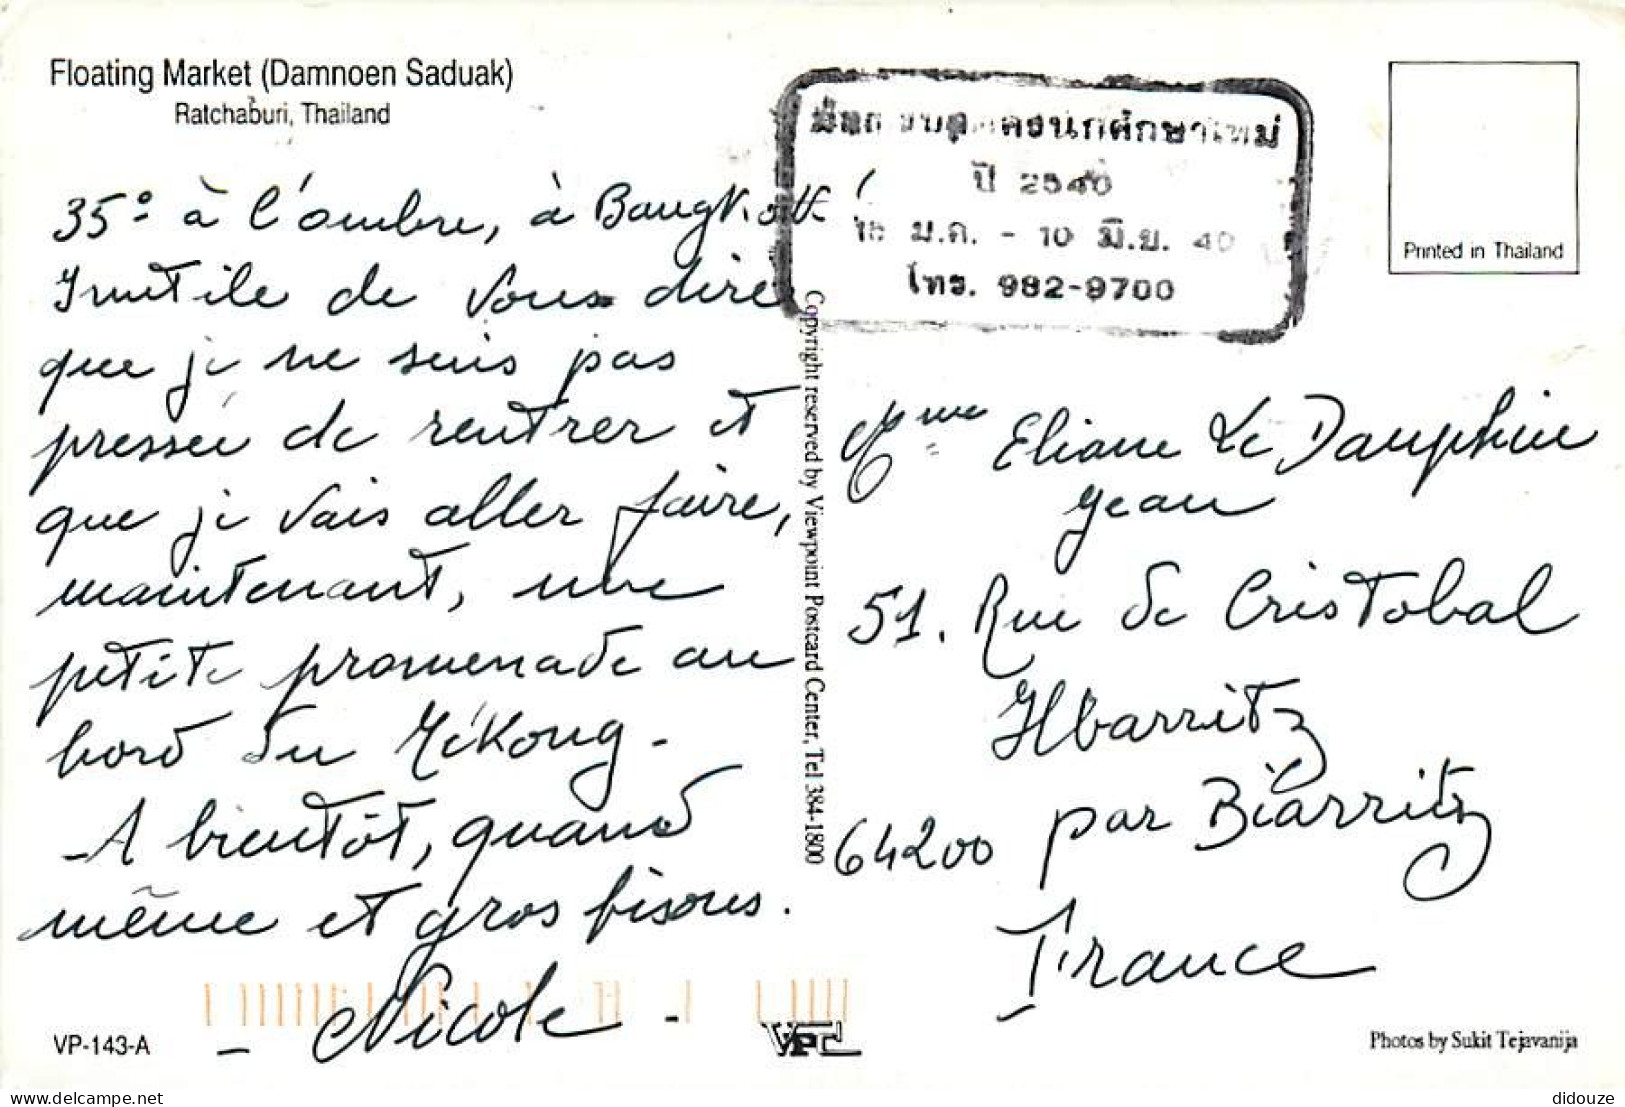 Floating Market (Damnoen Saduak)
Ratchaburi, Thailand
35° à l'ombre, à Bangkok!
Inutile de vous dire
que je ne suis pas
pressée de rentrer et
que je vais aller faire,
maintenant, une
petite promenade au
bord du Mékong.
- A bientôt, quand
même et gros bisous.
- Nicole -
VP-143-A
Copyright reserved by Viewpoint Postcard Center, Tel 384-1800
VPC
นักศึกษาใหม่
ปี 2540
ม.ค. - 10 มิ.ย. 40
โทร. 982-9700
Printed in Thailand
Mme Eliane Le Dauphin
Jean
51. Rue de Cristobal
Ilbarritz
64200 par Biarritz
France
Photos by Sukit Tejavanija
delcampe.net
didouze